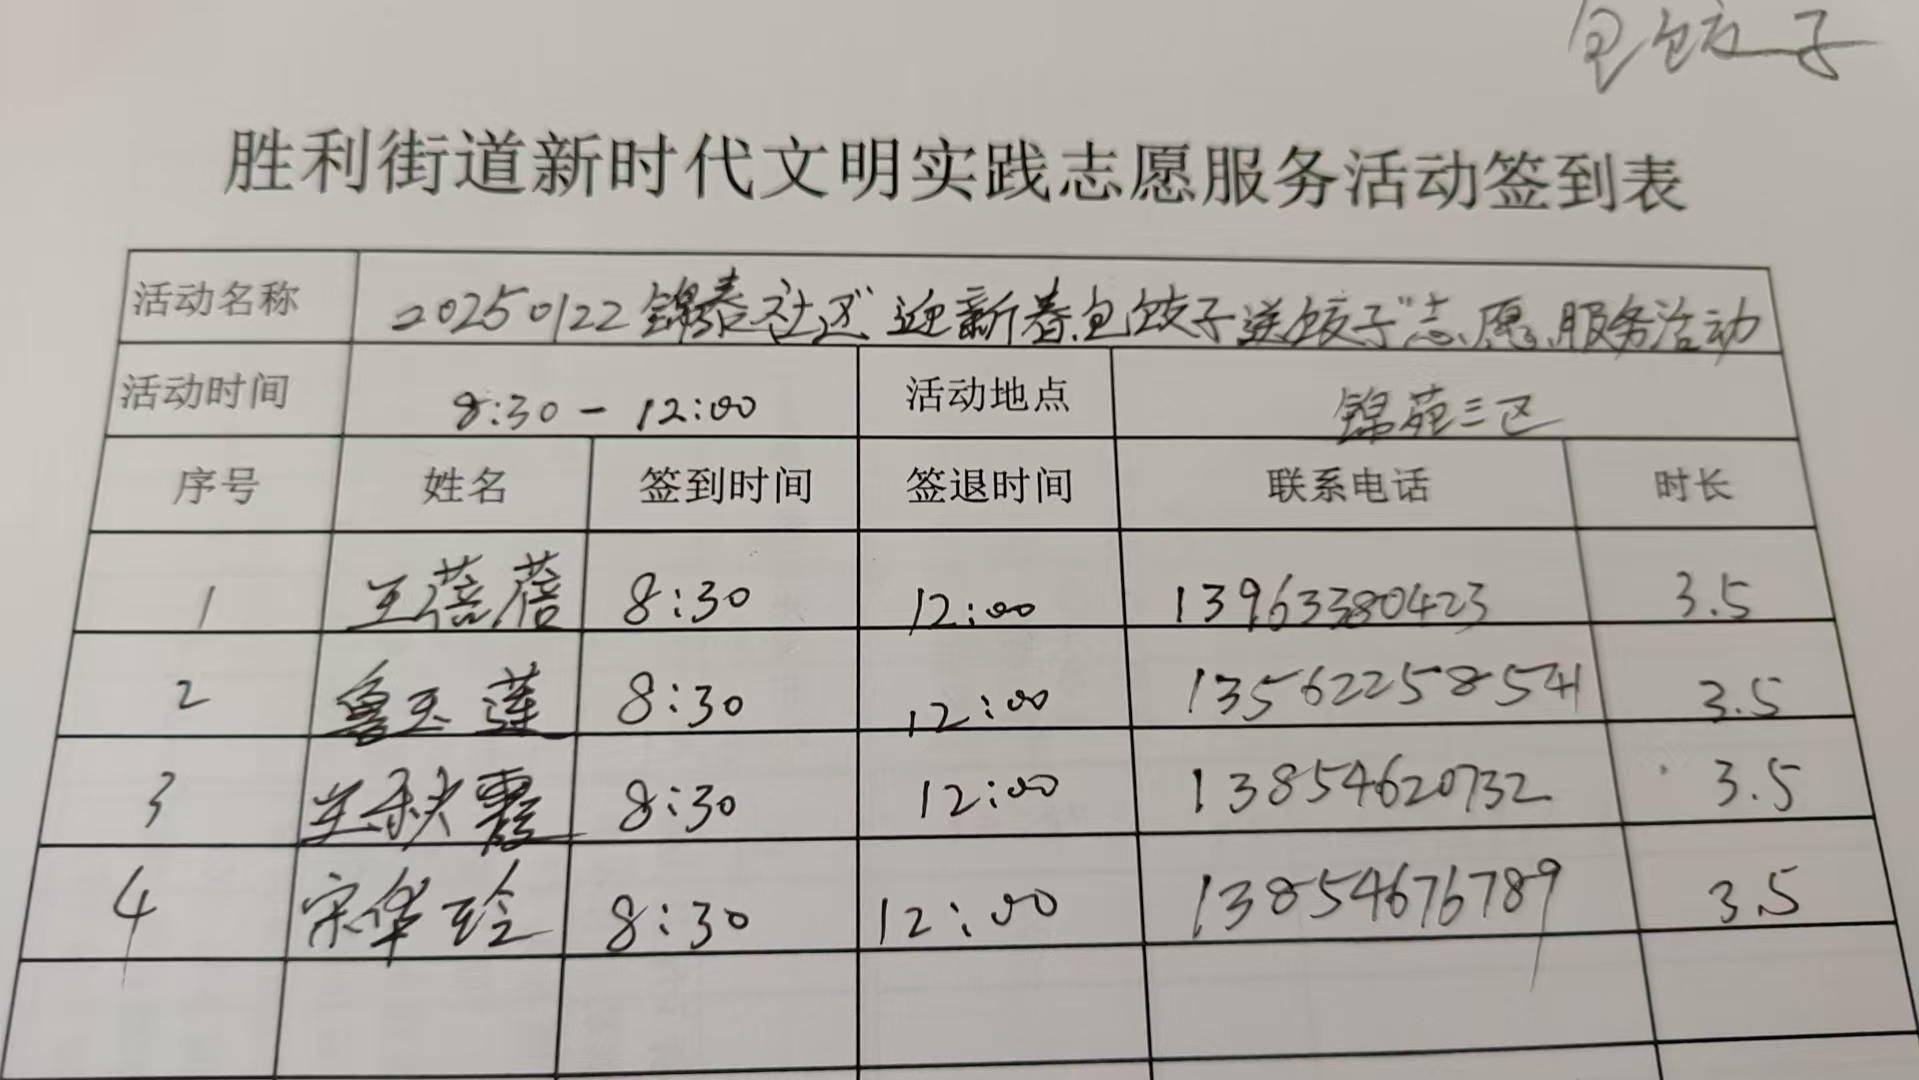 包饺子
胜利街道新时代文明实践志愿服务活动签到表
活动名称 20250122锦春社区"迎新春包饺子送饺子"志愿服务活动
活动时间 8:30-12:00 活动地点 锦苑三区
序号 姓名 签到时间 签退时间 联系电话 时长
1 王蓓蓓 8:30 12:00 13963380423 3.5
2 鲁玉莲 8:30 12:00 13562258541 3.5
3 兰秋霞 8:30 12:00 13854620732 3.5
4 宋华玲 8:30 12:00 13854676789 3.5